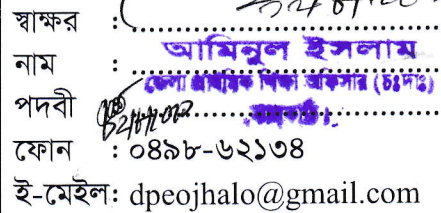 স্বাক্ষর :
নাম : আমিনুল ইসলাম
পদবী : জেলা প্রাথমিক শিক্ষা অফিসার (চঃদাঃ)
ফোন : ০৪৯৮-৬২১৩৪
ই-মেইল: dpeojhalo@gmail.com